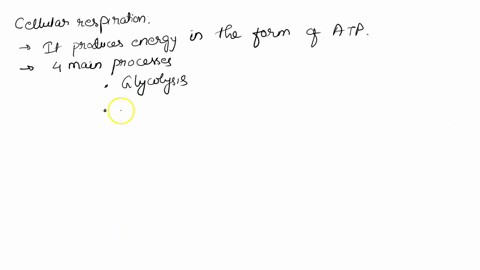 Cellular respiration.
→ It produces energy in the form of ATP.
→ 4 main processes
• Glycolysis
•